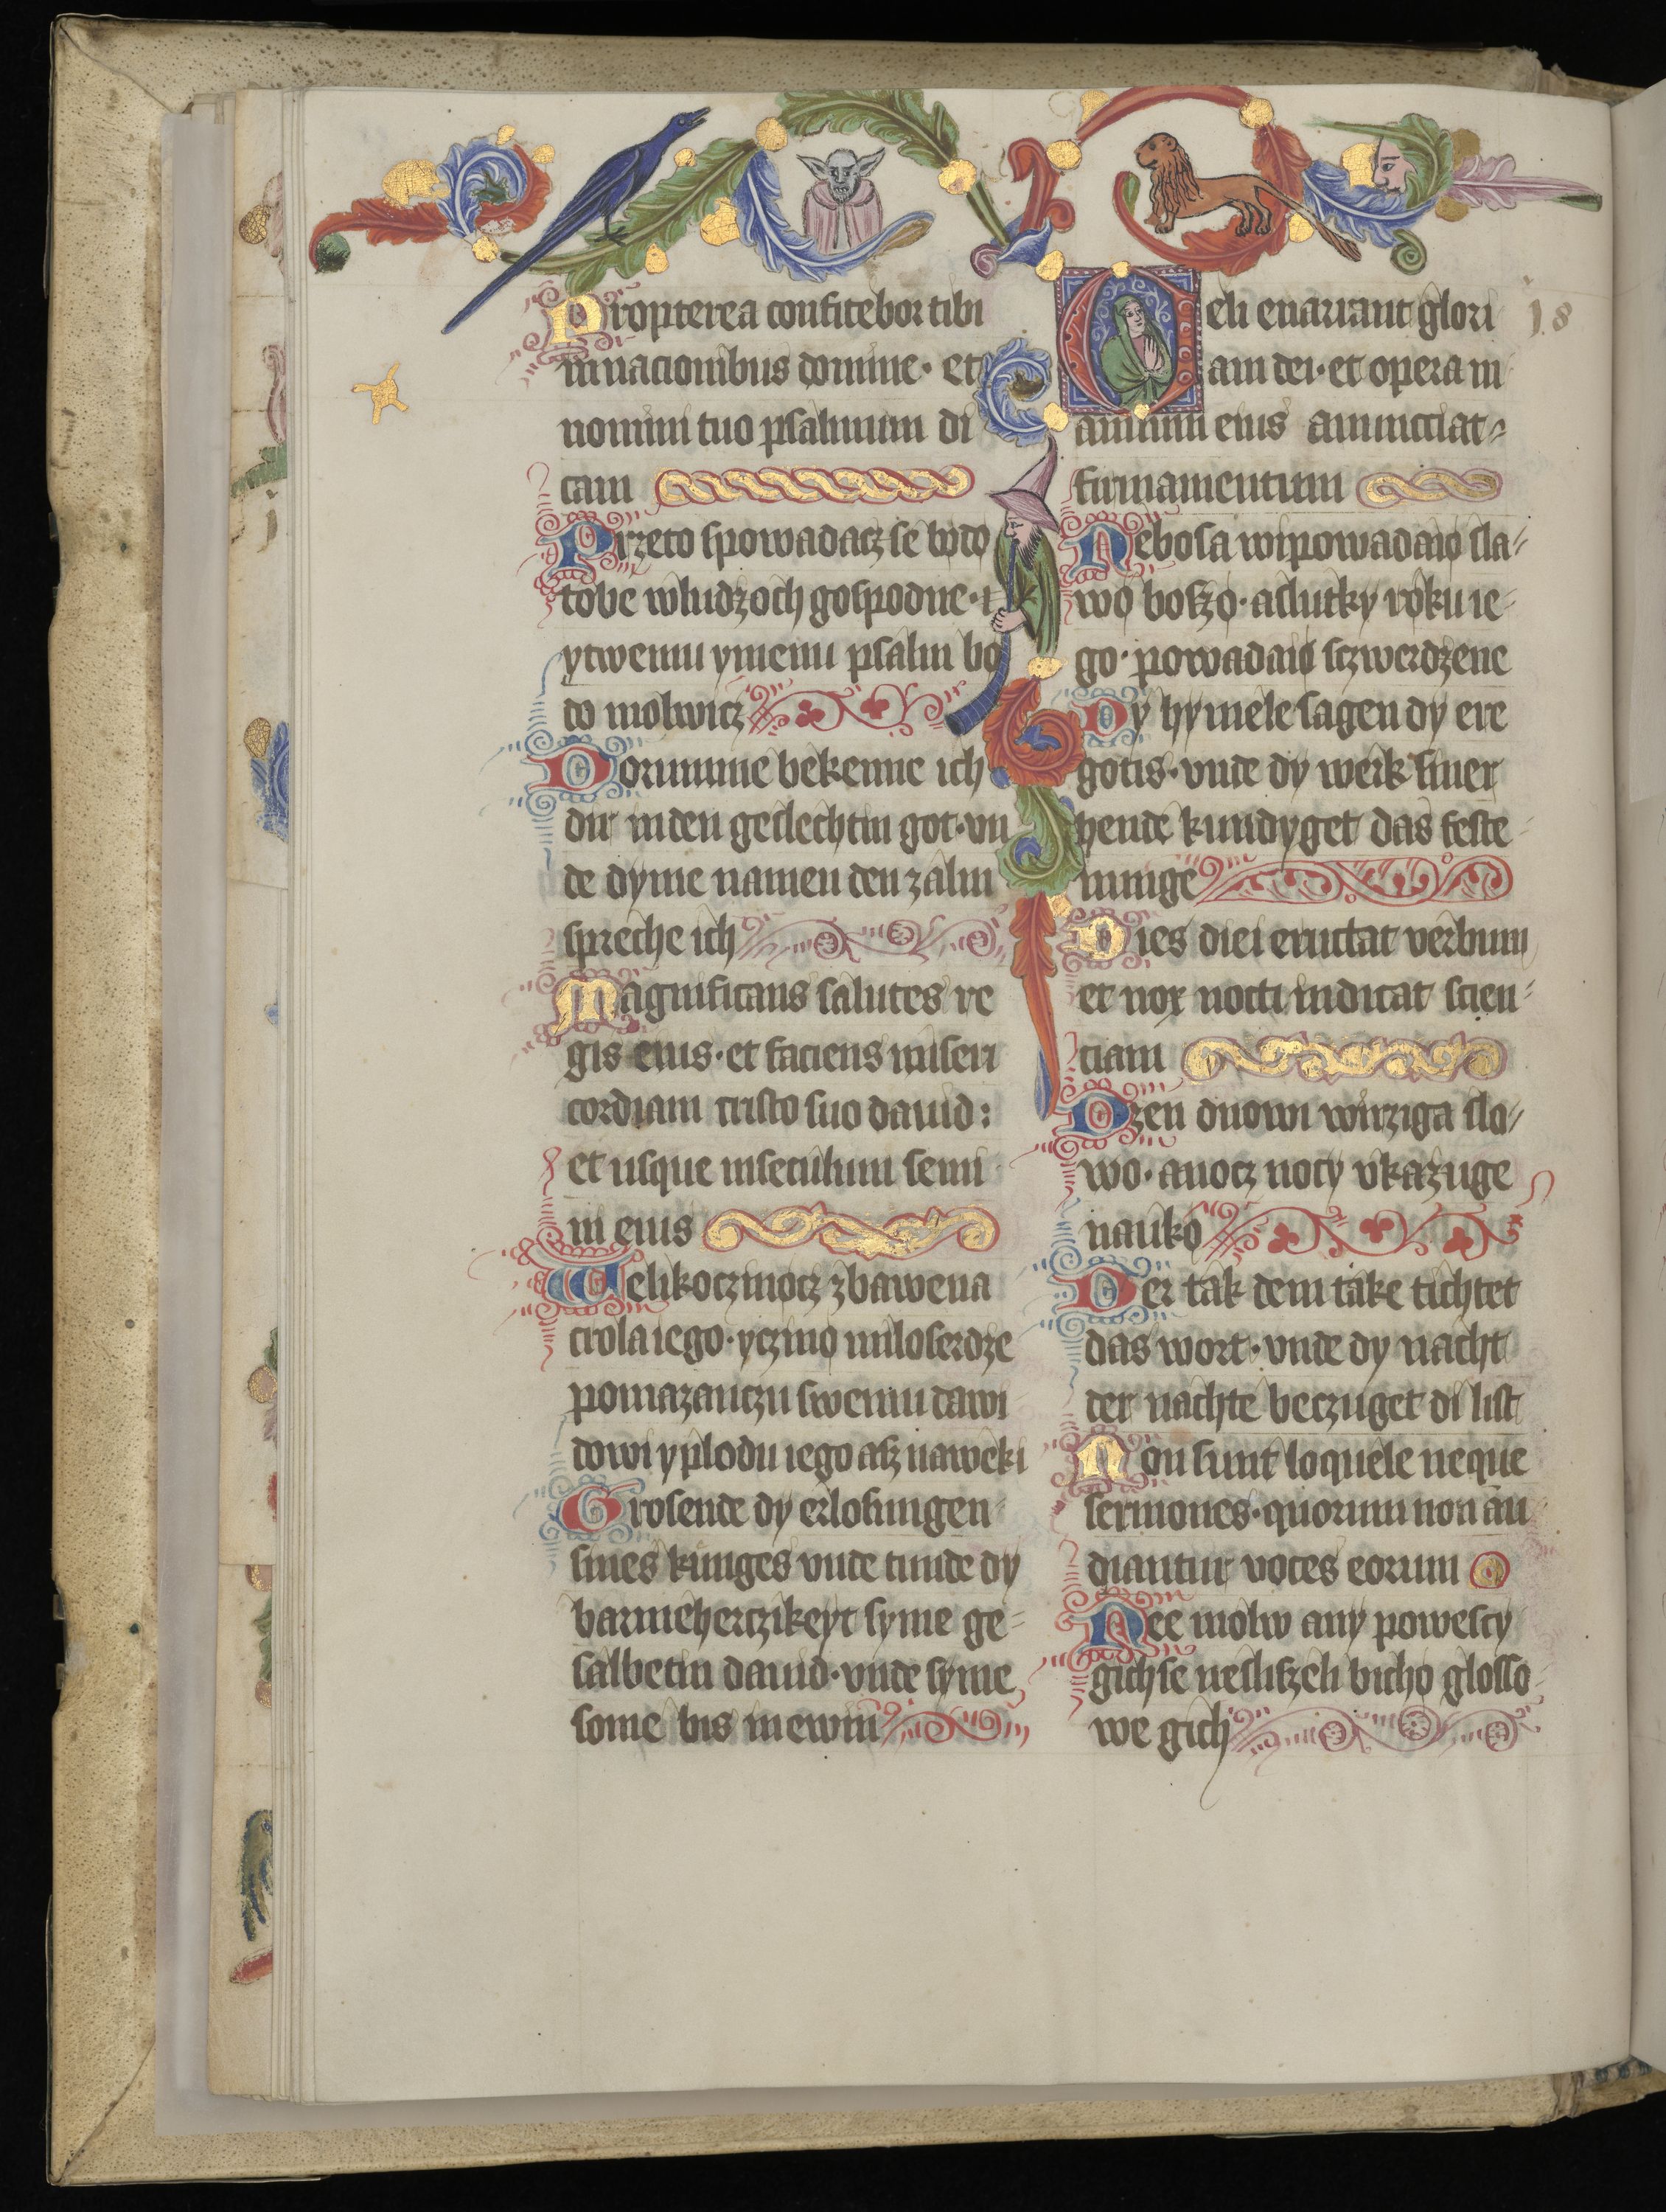 Propterea confitebor tibi
innacionibus domine · et
nomini tuo psalmum di
cam
Przeto spowadacz se bødø
tobe wludzoch gospodne · i
ytwemu ymenu psalm bø
dø molwicz
Dorumme bekenne ich
dir inden geslechtin got · vn
de dyme namen den zalm
spreche ich
Magnificans salutes re
gis eius · et faciens miseri
cordiam cristo suo dauid :
et usque inseculum semi
ni eius
Welikoczinocz zbawena
crola iego · yczinø miloserdze
pomazanczu swemu dawi
dowi y plodu iego asz naweki
Grosende dy erlosungen
sines kunges vnde tunde dy
barmeherczikeyt syme ge-
salbetin dauid · vnde syme
some bis in ewin
Celi enarrant glori
am dei · et opera m
anuum eius annucciat-
firmamentum
18
Nebosa wipowadaiø sla-
wø boszø · aslutky røku ie-
go · powadaiø sczwerdzene
Dy hymele sagen dy ere
gotis · vnde dy werk siner
hende kundyget das feste-
nunge
Dies diei eructat verbum
et nox nocti indicat scien-
ciam
Dzen dnowi wirziga slo-
wo · anocz nocy vkazuge
naukø
Der tak dem take tichtet
das wort · vnde dy nacht
der nachte beczuget di list
Non sunt loquele neque
sermones · quorum non au
diantur voces eorum
Nee molw any powescy
gichse nesliszeli bichø glosso-
we gich